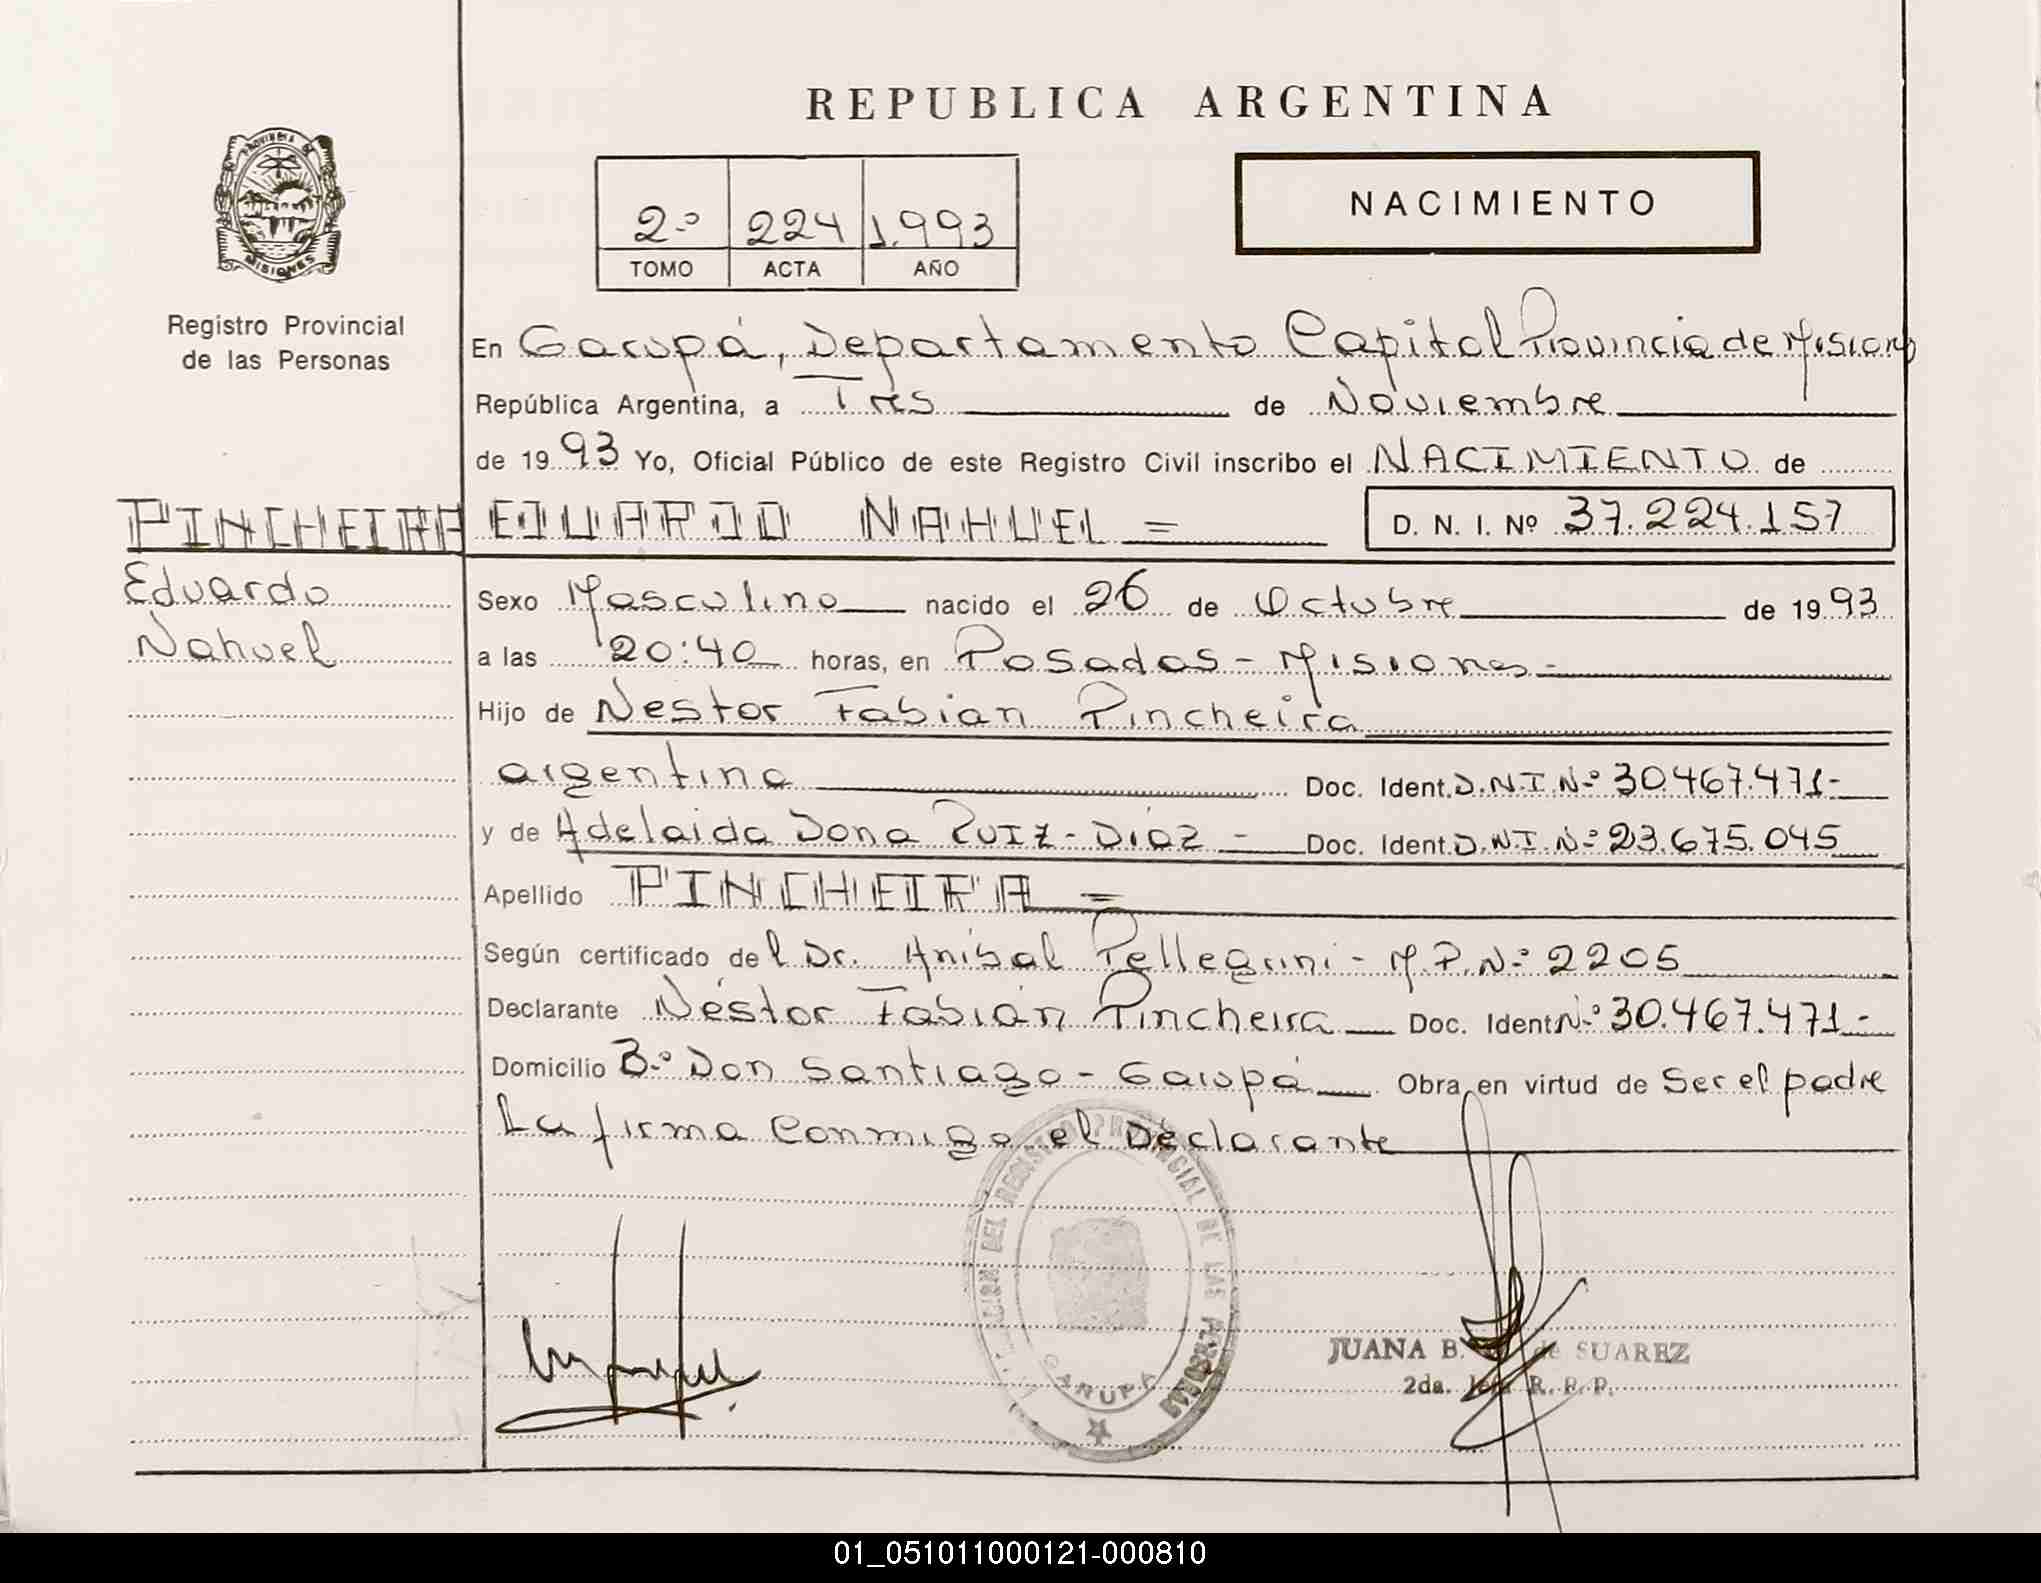 REPUBLICA ARGENTINA
PROVINCIA DE
MISIONES
Registro Provincial
de las Personas
2.º 224 1.993
TOMO ACTA AÑO
NACIMIENTO
En Garupá, Departamento Capital Provincia de Misiones
República Argentina, a Tres de Noviembre
de 1993 Yo, Oficial Público de este Registro Civil inscribo el NACIMIENTO de
PINCHEIRA EDUARDO NAHUEL =
D. N. I. Nº 37.224.157
Eduardo
Nahuel
Sexo Masculino nacido el 26 de Octubre de 1993
a las 20:40 horas, en Posadas - Misiones -
Hijo de Nestor Fabian Pincheira
argentina Doc. Ident. D.N.I.N.º 30.467.471-
y de Adelaida Dona Ruiz - Díaz - Doc. Ident. D.N.I.N.º 23.675.045
Apellido PINCHEIRA =
Según certificado del Dr. Anibal Pellegrini - M.P.N.º 2205
Declarante Néstor Fabián Pincheira Doc. Ident N.º 30.467.471-
Domicilio B.º Don Santiago - Garupá Obra en virtud de Ser el padre
La firma Conmigo el Declarante
DEL REGISTRO PROVINCIAL DE LAS PERSONAS
GARUPA
JUANA B. de SUAREZ
2da. Jefa R. P. P.
01_051011000121-000810